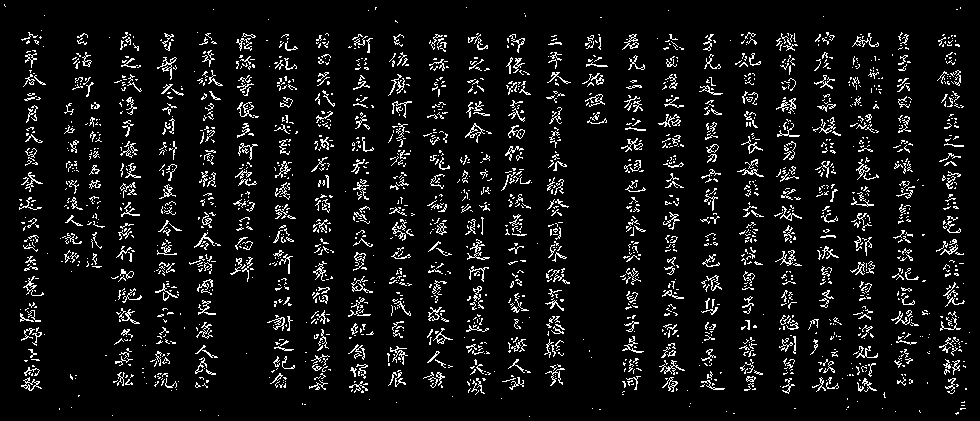 祖日觸使主之女宮主宅媛生菟道稚郎子
皇子矢田皇女雌鳥皇女次妃宅媛之弟小
甂媛生菟道稚郎姬皇女次妃河派
仲彥女弟媛生稚野毛二派皇子派此云摩多次妃
櫻井田部連男鉏之妹糸媛生隼總別皇子
次妃日向泉長媛生大葉枝皇子小葉枝皇
子凡是天皇男女并廿王也根鳥皇子是
大田君之始祖也大山守皇子是土形君榛原
君凡二族之始祖也去來真稚皇子是深河
別之始祖也
三年冬十月辛未朔癸酉東蝦夷悉朝貢
即役蝦夷而作厩坂道十一月處々海人訕
哤之不從命訕哤此云佐麼賣玖則遣阿曇連祖大濱
宿祢平其訕哤因為海人之宰故俗人諺
曰佐麼阿摩者其是緣也是歲百濟辰
斯王立之失礼於貴國天皇故遣紀角宿祢
羽田矢代宿祢石川宿祢木菟宿祢嘖讓其
无礼狀由是百濟國殺辰斯王以謝之紀角
宿祢等便立阿花為王而歸
五年秋八月庚寅朔壬寅令諸國定海人及山
守部冬十月科伊豆國令造船長十丈船既
成之試浮于海便輕泛疾行如馳故名其船
曰枯野由船輕疾名枯野是義違焉若謂輕野後人訛歟
六年春二月天皇幸近江國至菟道野上而歌